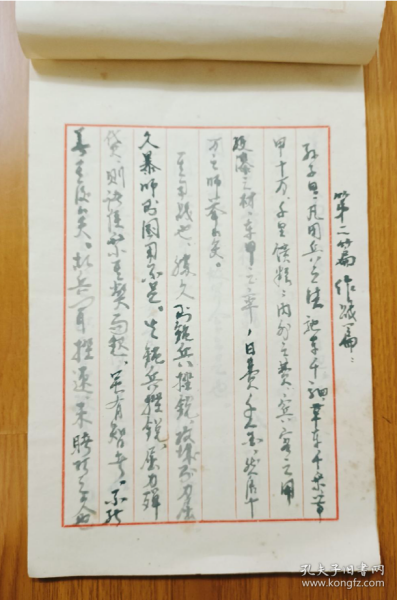 第二篇 作战篇：
孙子曰：凡用兵之法，驰车千驷，革车千乘，带
甲十万，千里馈粮；内外之费，宾客之用，
胶漆之材，车甲之奉，日费千金，然后十
万之师举矣。
其用战也，胜久则钝兵挫锐，攻城则力屈，
久暴师则国用不足。夫钝兵挫锐，屈力殚
货，则诸侯乘其弊而起，虽有智者，不能
善其后矣。故兵闻拙速，未睹
孔夫子旧书网
www.kongfz.com